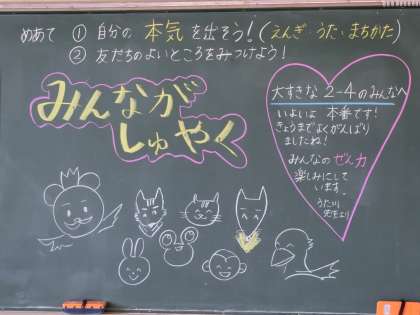 めあて ① 自分の 本気を出そう！（えんぎ・うた・まちかた）
② 友だちのよいところをみつけよう！
みんなが
しゅやく
大すきな 2-4のみんなへ
いよいよ 本番です！
きょうまでよくがんばり
ましたね！
みんなのぜん力
楽しみにして
います。
先生より